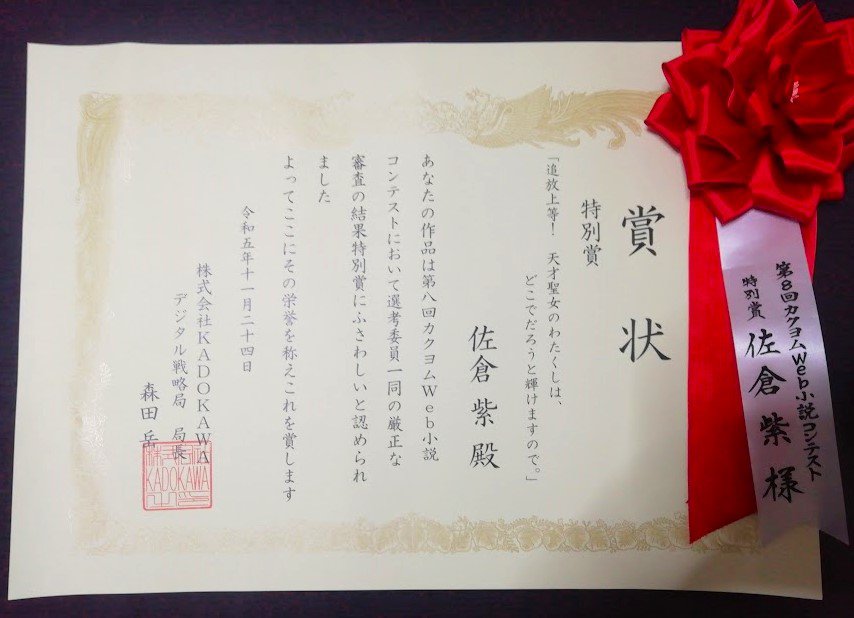 賞状
特別賞
「追放上等！　天才聖女のわたくしは、
どこでだろうと輝けますので。」
佐倉 紫 殿
あなたの作品は第八回カクヨムWeb小説
コンテストにおいて選考委員一同の厳正な
審査の結果特別賞にふさわしいと認められ
ました
よってここにその栄誉を称えこれを賞します
令和五年十一月二十四日
株式会社KADOKAWA
デジタル戦略局　局長
森田 岳
KADOKAWA
第8回カクヨムWeb小説コンテスト
特別賞 佐倉 紫 様